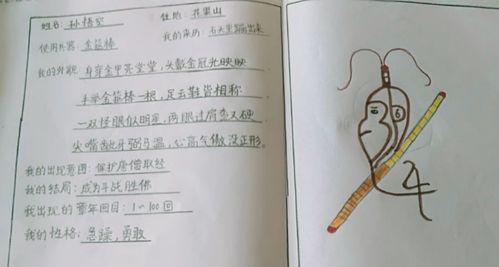 姓名：孙悟空 住地：花果山
使用兵器：金箍棒 我的来历：石头里蹦出来
我的外貌：身穿金甲亮堂堂，头戴金冠光映映
手举金箍棒一根，足云鞋皆相称
一双怪眼似明星，两耳过肩查又硬
尖嘴龇牙弱弓温，心高气傲没正形。
我的出现意图：保护唐僧取经
我的结局：成为斗战胜佛
我出现的章年回目：1~100回
我的性格：急躁，勇敢